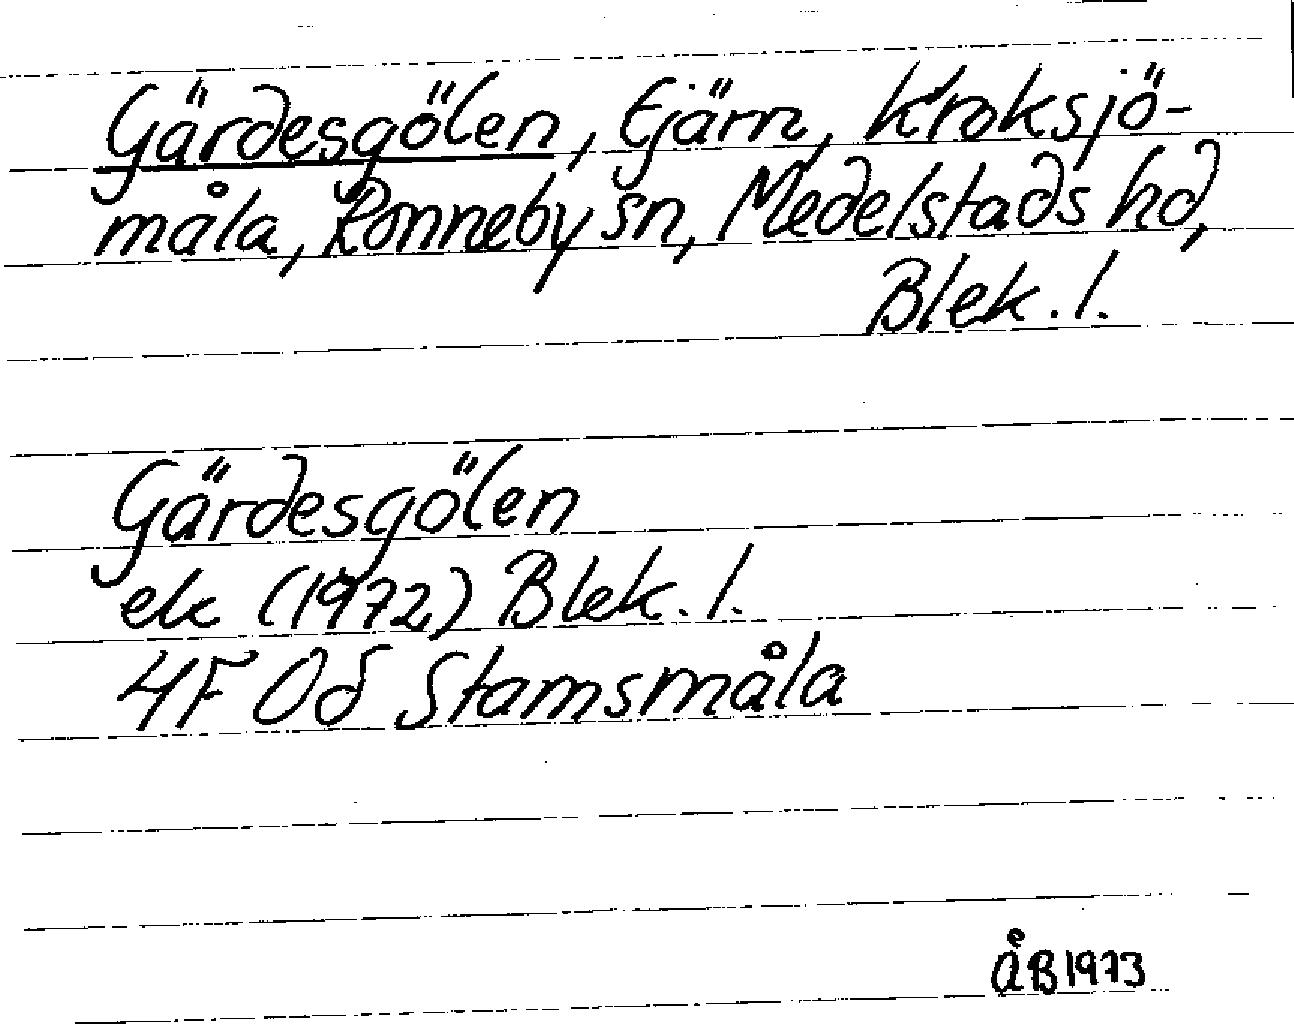 Gärdesgölen, tjärn, Kroksjö-
måla, Ronneby sn, Medelstads hd,
Blek. l.
Gärdesgölen
ek (1972) Blek. l.
4F 0d Stamsmåla
ÅB 1973